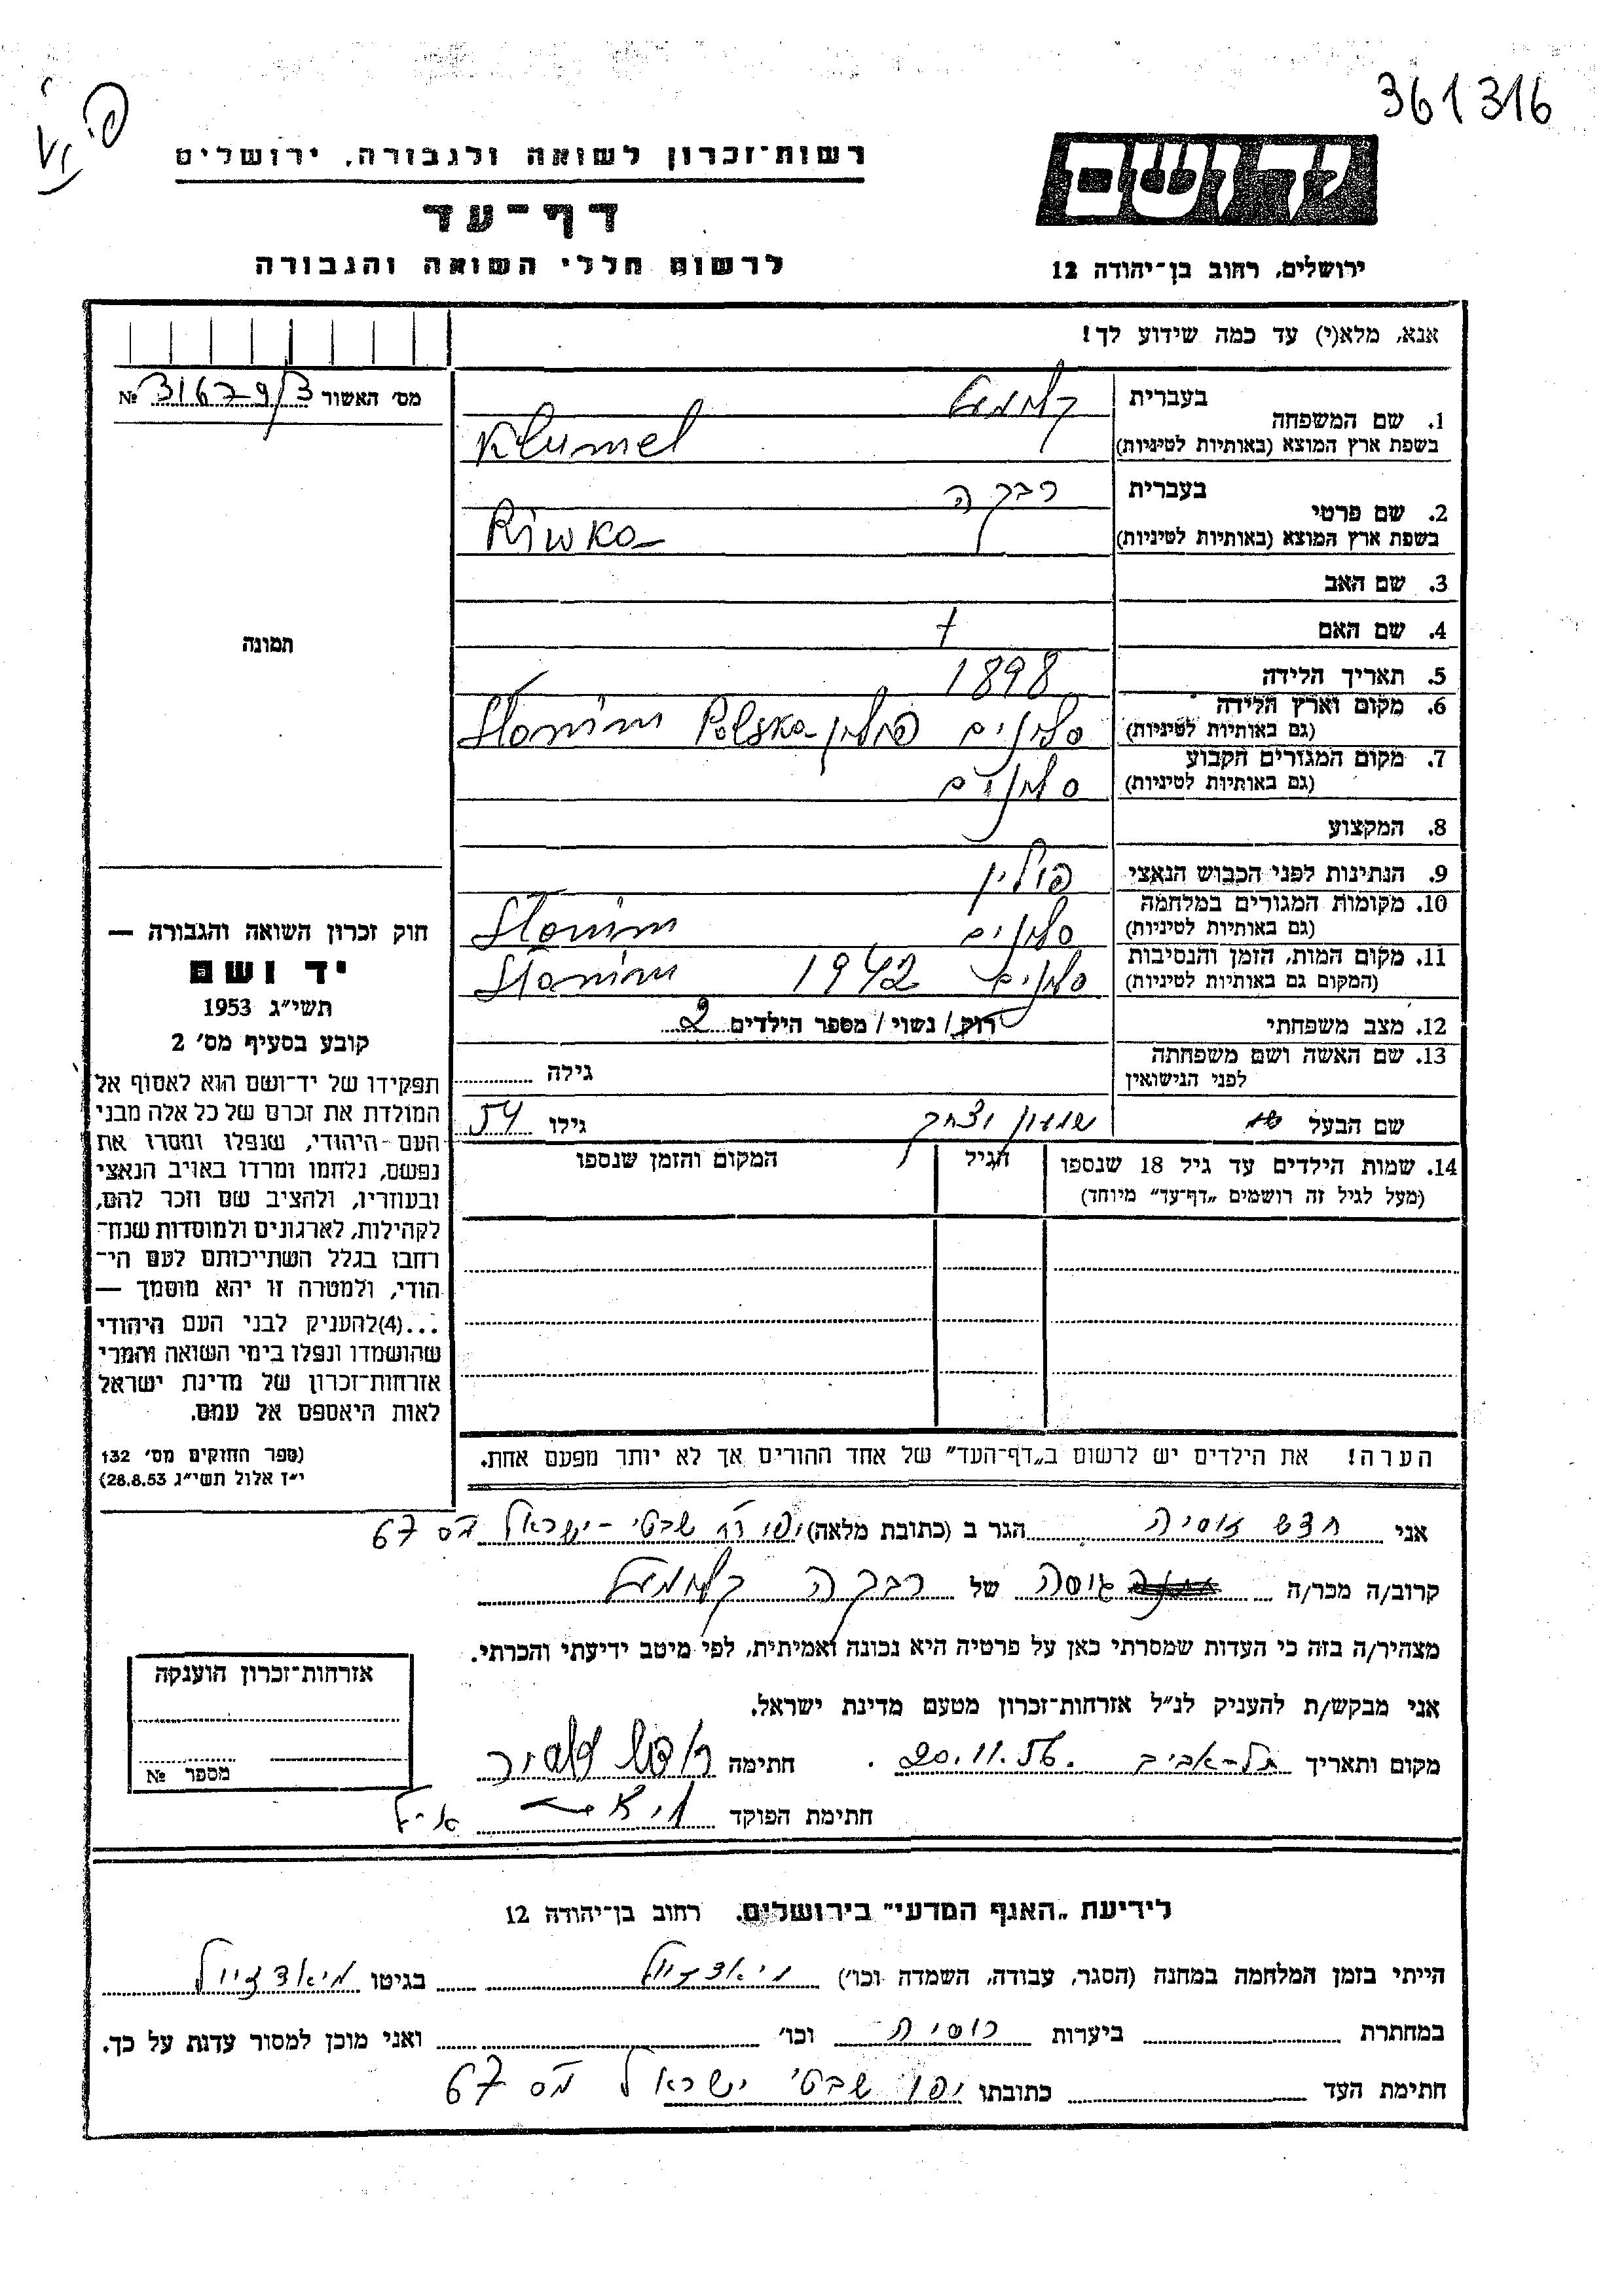 361316
יד ושם
רשות־זכרון לשואה ולגבורה, ירושלים
דף־עד
ירושלים, רחוב בן־יהודה 12
לרשום חללי השואה והגבורה
אנא, מלא(י) עד כמה שידוע לך!
מס׳ האשור 31679/3 №
1. שם המשפחה
בעברית קלומל
בשפת ארץ המוצא (באותיות לטיניות) Klumel
2. שם פרטי
בעברית רבקה
בשפת ארץ המוצא (באותיות לטיניות) Riwka
3. שם האב
4. שם האם
5. תאריך הלידה 1898
6. מקום וארץ הלידה
(גם באותיות לטיניות) סלונים פולין Słonim Polska
7. מקום המגורים הקבוע
(גם באותיות לטיניות) סלונים
8. המקצוע
9. הנתינות לפני הכבוש הנאצי פולין
10. מקומות המגורים במלחמה
(גם באותיות לטיניות) סלונים Słonim
11. מקום המות, הזמן והנסיבות
(המקום גם באותיות לטיניות) סלונים 1942 Słonim
12. מצב משפחתי רוק / נשוי / מספר הילדים 2
13. שם האשה ושם משפחתה
לפני הנישואין גילה
שם הבעל שמעון יצחק גילו 54
14. שמות הילדים עד גיל 18 שנספו הגיל המקום והזמן שנספו
(מעל לגיל זה רושמים „דף־עד״ מיוחד)
הערה! את הילדים יש לרשום ב„דף־העד״ של אחד ההורים אך לא יותר מפעם אחת.
תמונה
חוק זכרון השואה והגבורה —
יד ושם
תשי״ג 1953
קובע בסעיף מס׳ 2
תפקידו של יד־ושם הוא לאסוף אל
המולדת את זכרם של כל אלה מבני
העם היהודי, שנפלו ומסרו את
נפשם, נלחמו ומרדו באויב הנאצי
ובעוזריו, ולהציב שם וזכר להם,
לקהילות, לארגונים ולמוסדות שנח־
רחבו בגלל השתייכותם לעם הי־
הודי, ולמטרה זו יהא מוסמך —
...(4)להעניק לבני העם היהודי
שהושמדו ונפלו בימי השואה והמרי
אזרחות־זכרון של מדינת ישראל
לאות היאספם אל עמם.
(ספר החוקים מס׳ 132
י״ז אלול תשי״ג 28.8.53)
אני חדש זוסיה הגר ב (כתובת מלאה) יפו רח׳ שבטי-ישראל מס 67
קרוב/ה מכר/ה גיסה של רבקה קלומל
מצהיר/ה בזה כי העדות שמסרתי כאן על פרטיה היא נכונה ואמיתית, לפי מיטב ידיעתי והכרתי.
אני מבקש/ת להעניק לנ״ל אזרחות־זכרון מטעם מדינת ישראל.
מקום ותאריך תל-אביב 20.11.56. חתימה
חתימת הפוקד
אזרחות־זכרון הוענקה
מספר №
לידיעת „האגף המדעי״ בירושלים. רחוב בן־יהודה 12
הייתי בזמן המלחמה במחנה (הסגר, עבודה, השמדה וכו׳) מיאדזיול בגיטו מיאדזיול
במחתרת ביערות רוסית וכו׳ ואני מוכן למסור עדות על כך.
חתימת העד כתובתו יפו שבטי ישראל מס 67